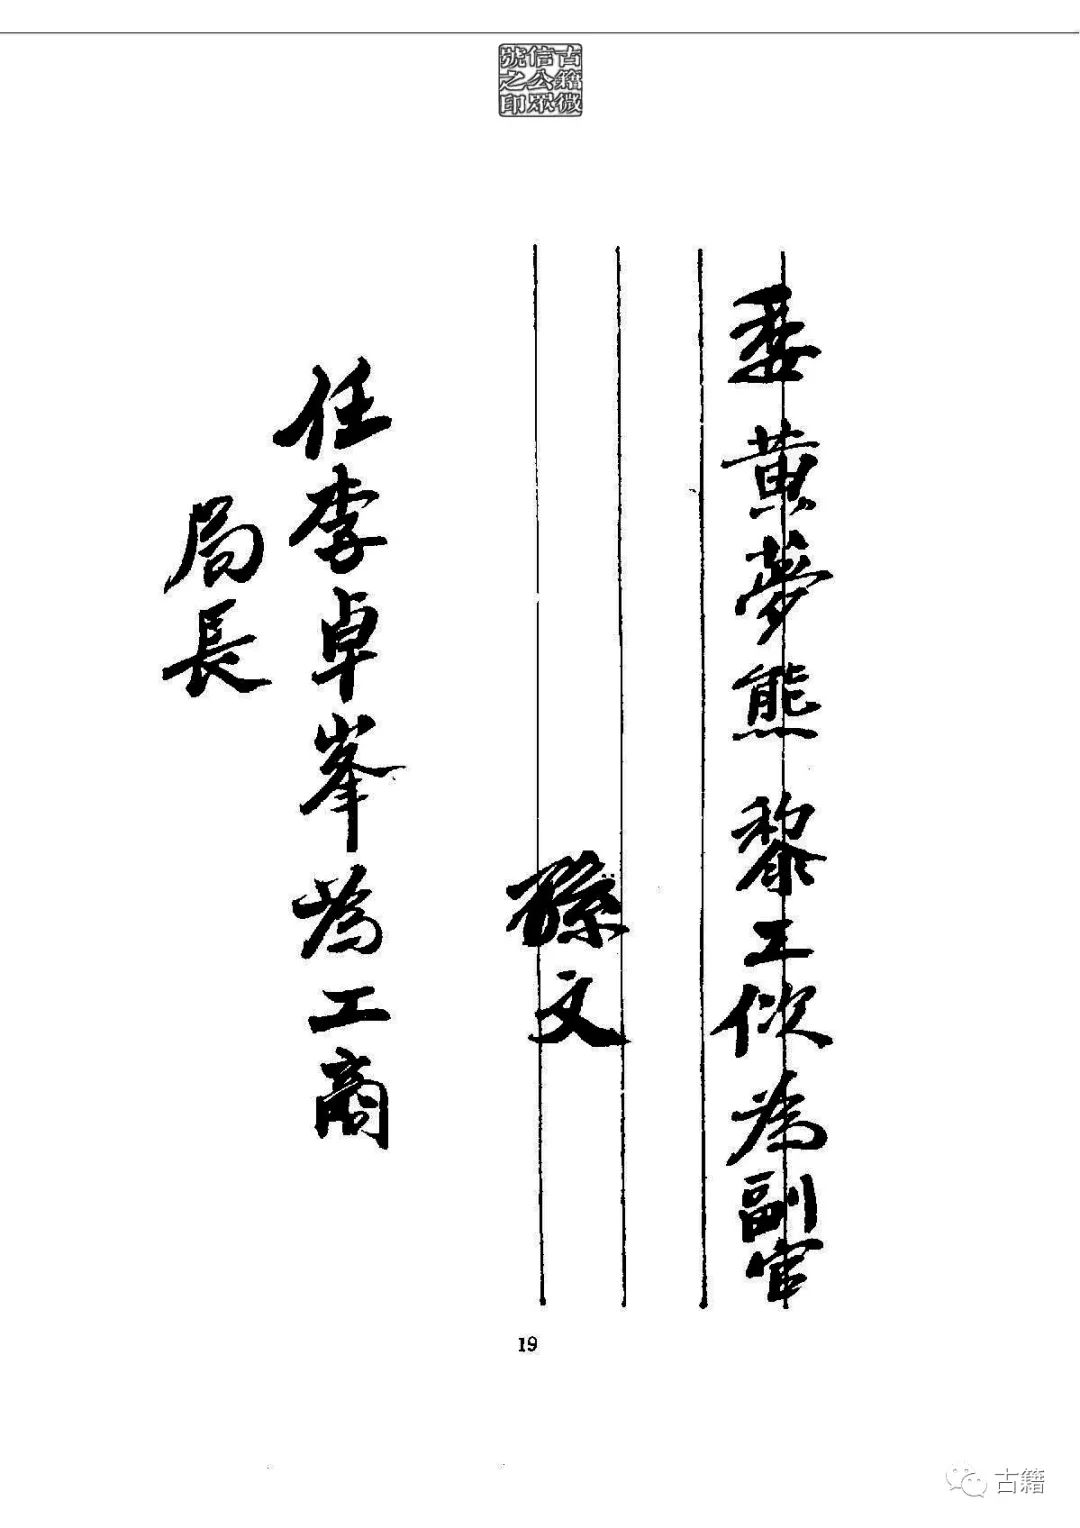 古籍微
信公眾
號之印
委黃夢熊 黎工佽為副官
孫文
任李卓峯為工商
局長
19
古籍